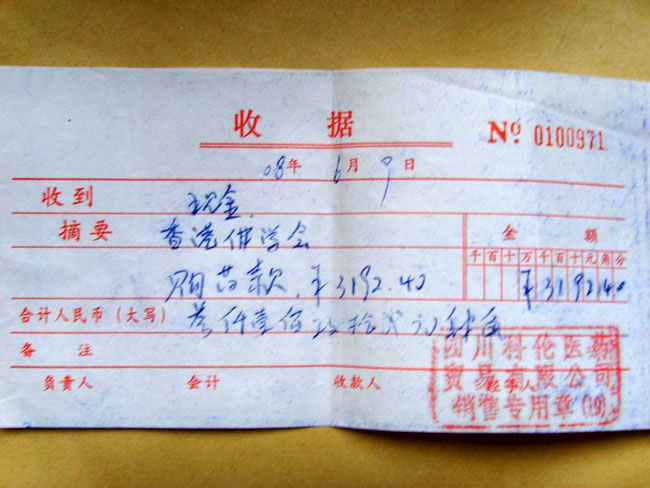 收据
Nº 0100971
08年 6月 9日
收到 现金.
摘要 香港佛学会
金额
千百十万千百十元角分
购药款. ¥3192.40
¥3192.40
合计人民币（大写） 叁仟壹佰玖拾贰元肆角
备注
负责人 会计 收款人 经手人
四川科伦医药
贸易有限公司
销售专用章(19)